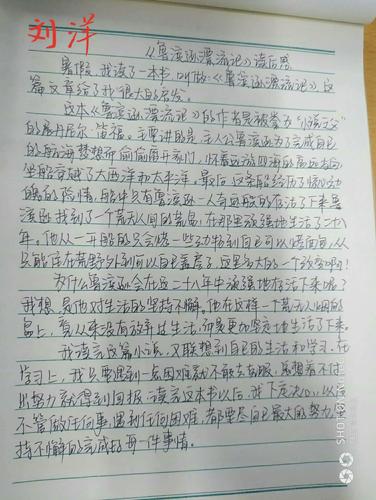 刘洋
《鲁滨逊漂流记》读后感
暑假,我读了一本书,叫做《鲁滨逊漂流记》这
篇文章给了我很大的启发。
这本《鲁滨逊漂流记》的作者是被拳为“小说之父”
的丹尼尔·笛福。主要讲的是:主人公鲁滨逊为了完成自己
的航海梦想而偷偷离开家门,怀着远游四海的高远志向
坐船穿越了大西洋和太平洋。最后这条船经历了惊心动
魄的险情,船中只有鲁滨逊一人奇迹般的存活了下来鲁
滨逊找到了一个荒无人间的荒岛,在那里顽强地生活了二十八
年。他从一开始的只会烤一些动物到自己可以烤面包,从
只能住在荒野外到可以自己盖房子,这是多大的一个改变啊!
为什么鲁滨逊会在这二十八年中顽强地存活下来呢?
我想,是他对生活的坚持不懈。他在这样一个荒无人烟的
岛上,看从来没有放弃过生活,而是更加坚定地生活了下来。
我读完这篇小说,又联想到自己的生活和学习。在
学习上,我只要遇到一点困难就不敢去克服,总想着不付
出努力就得到回报。读完这本书以后,我下定决心,以后
不管做任何事,遇到任何困难,都要尽自己最大的努力,坚
持不懈的完成好每一件事情。
SHOT ON